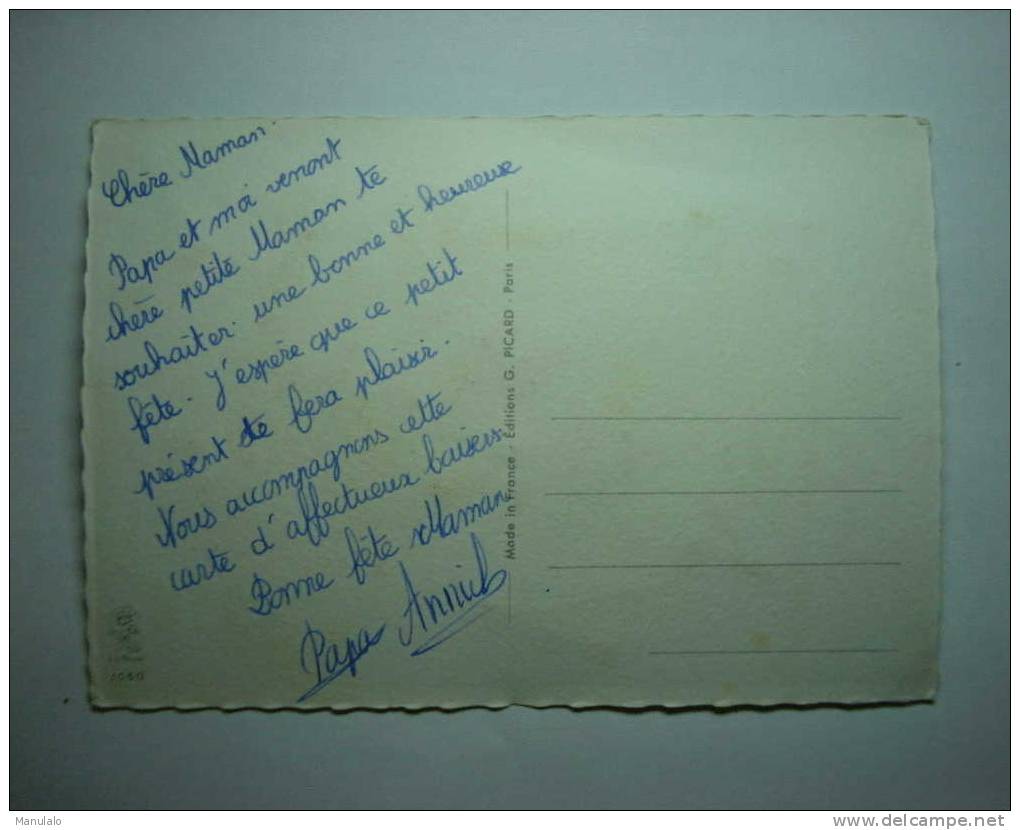 Chère Maman
Papa et moi venont
chère petite Maman te
souhaiter. une bonne et heureuse
fête. J'espère que ce petit
présent te fera plaisir.
Nous accompagnons cette
carte d'affectueux baisers.
Bonne fête Maman
Papa Annick
Made in France - Éditions G. PICARD - Paris
Manulalo
www.delcampe.net